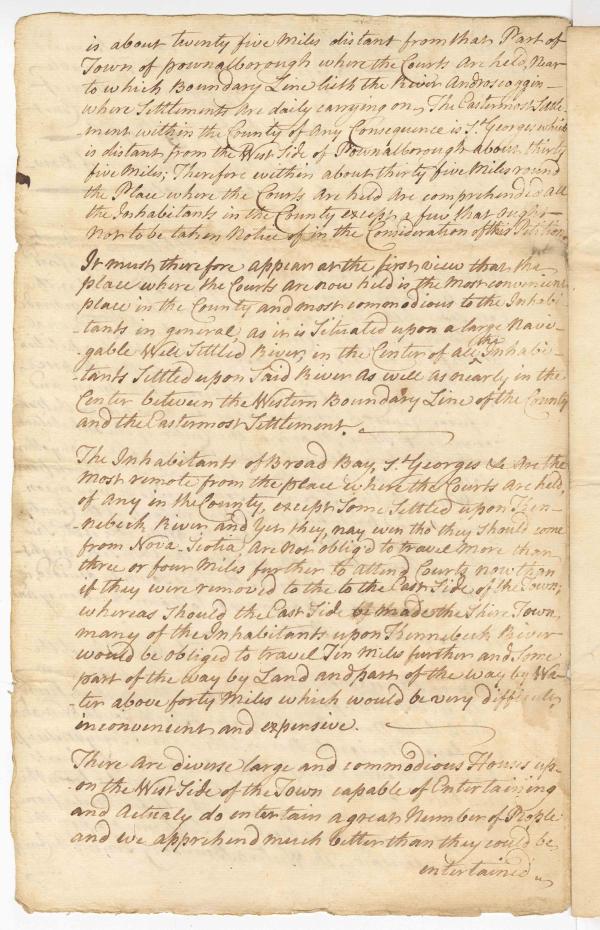 is about twenty five Miles distant from that Part of
Town of pownalborough where the Courts Are held, Near
to which Boundary Line lieth the River Androscoggin—
where Settlements Are daily carrying on, The Eastermost Settle-
-ment within the County of Any Consequence is St. Georges which
is distant from the West Side of Pownalborough About thirty
five Miles; Therefore within about thirty five Miles round
the Place where the Courts Are held Are comprehended all
the Inhabitants in the County except a few that ought—
Not to be taken Notice of in the Consideration of this Petition.
It must therefore appear at the first view that the
place where the Courts are now held is the most convenient
place in the County and most commodious to the Inhabi-
-tants in general, as it is Situated upon a large Navi-
-gable Well Settled River, in the Center of all the Inhabi-
-tants Settled upon Said River As well as nearly in the
Center between the Western Boundary Line of the County
and the Eastermost Settlement.
The Inhabitants of Broad Bay, St. Georges &c Are the
most remote from the place where the Courts Are held,
of any in the County, except Some Settled upon Ken-
-nebeck River and Yet they, nay even tho' they Should come
from Nova-Scotia, Are Not oblig'd to travel More than
three or four Miles further to attend Courts now than
if they were removed to the to the East Side of the Town;
whereas Should the East Side be made the Shire Town
many of the Inhabitants upon Kennebeck River
would be obliged to travel Ten Miles further and Some
part of the way by Land and part of the way by Wa-
ter above forty Miles which would be very difficult,
inconvenient and expensive.
There Are diverse large and commodious Houses up-
-on the West Side of the Town capable of Entertaining
and Actualy do entertain a great Number of People
and we apprehend much better than they could be
entertained